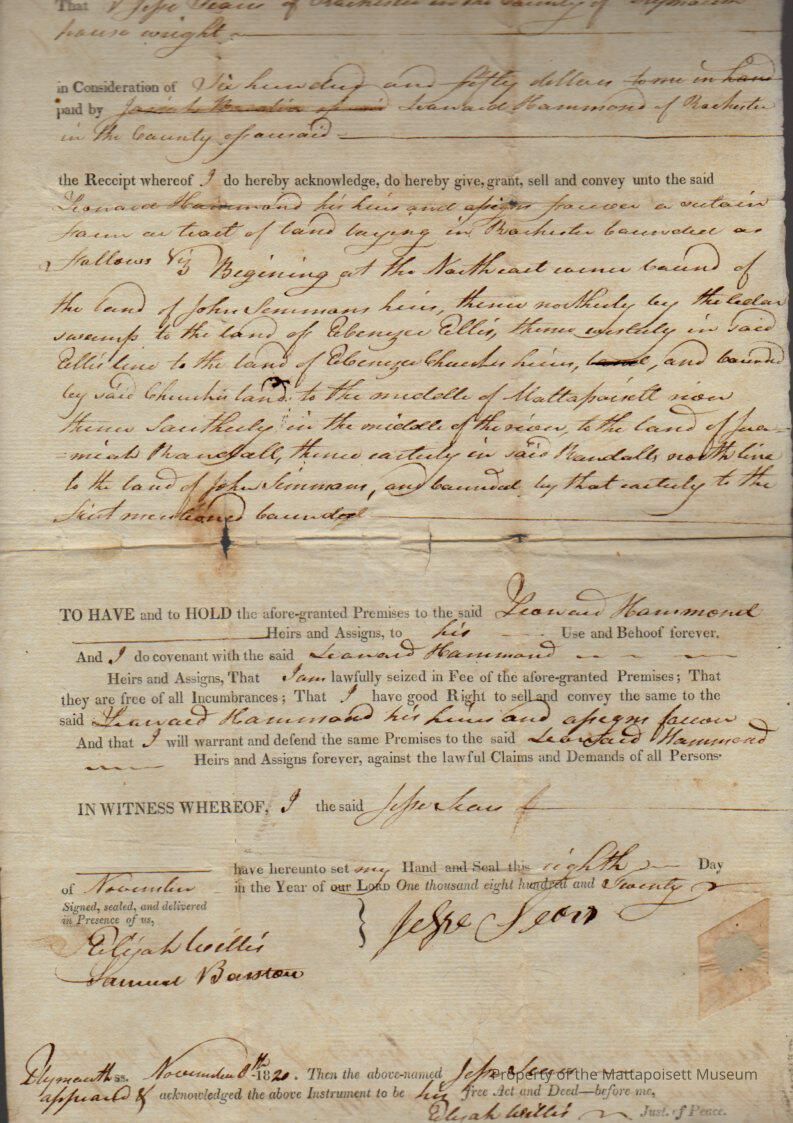 That I Jesse Sears of Rochester in the County of Plymouth
house wright
in Consideration of Six hundred and fifty dollars to me in hand
paid by Leonard Hammond of Rochester
in the County aforesaid
the Receipt whereof I do hereby acknowledge, do hereby give, grant, sell and convey unto the said
Leonard Hammond his heirs and assigns forever a certain
farm or tract of land laying in Rochester bounded as
follows viz Begining at the Northeast corner bound of
the land of John Simmons heirs, thence northerly by the Cedar
swamp to the land of Ebenezer Ellis, thence easterly in said
Ellis line to the land of Ebenezer Churches heirs, and bounded
by said Churches land to the middle of Mattapoisett river
thence Southerly in the middle of the river, to the land of Jere=
=miah Randall, thence easterly in said Randalls north line
to the land of John Simmons, and bounded by that easterly to the
first mentioned bounded
TO HAVE and to HOLD the afore-granted Premises to the said Leonard Hammond
Heirs and Assigns, to his Use and Behoof forever.
And I do covenant with the said Leonard Hammond
Heirs and Assigns, That I am lawfully seized in Fee of the afore-granted Premises; That
they are free of all Incumbrances; That I have good Right to sell and convey the same to the
said Leonard Hammond his heirs and assigns forever
And that I will warrant and defend the same Premises to the said Leonard Hammond
Heirs and Assigns forever, against the lawful Claims and Demands of all Persons.
IN WITNESS WHEREOF, I the said Jesse Sears
have hereunto set my Hand and Seal this eighth Day
of November in the Year of our LORD One thousand eight hundred and Twenty
Signed, sealed, and delivered
in Presence of us,
Jesse Sears
Elijah Willis
Samuel Barstow
Plymouth ss. November 8th 1820. Then the above-named Jesse Sears
appeared & acknowledged the above Instrument to be his free Act and Deed—before me,
Elijah Willis Just. of Peace.
Property of the Mattapoisett Museum